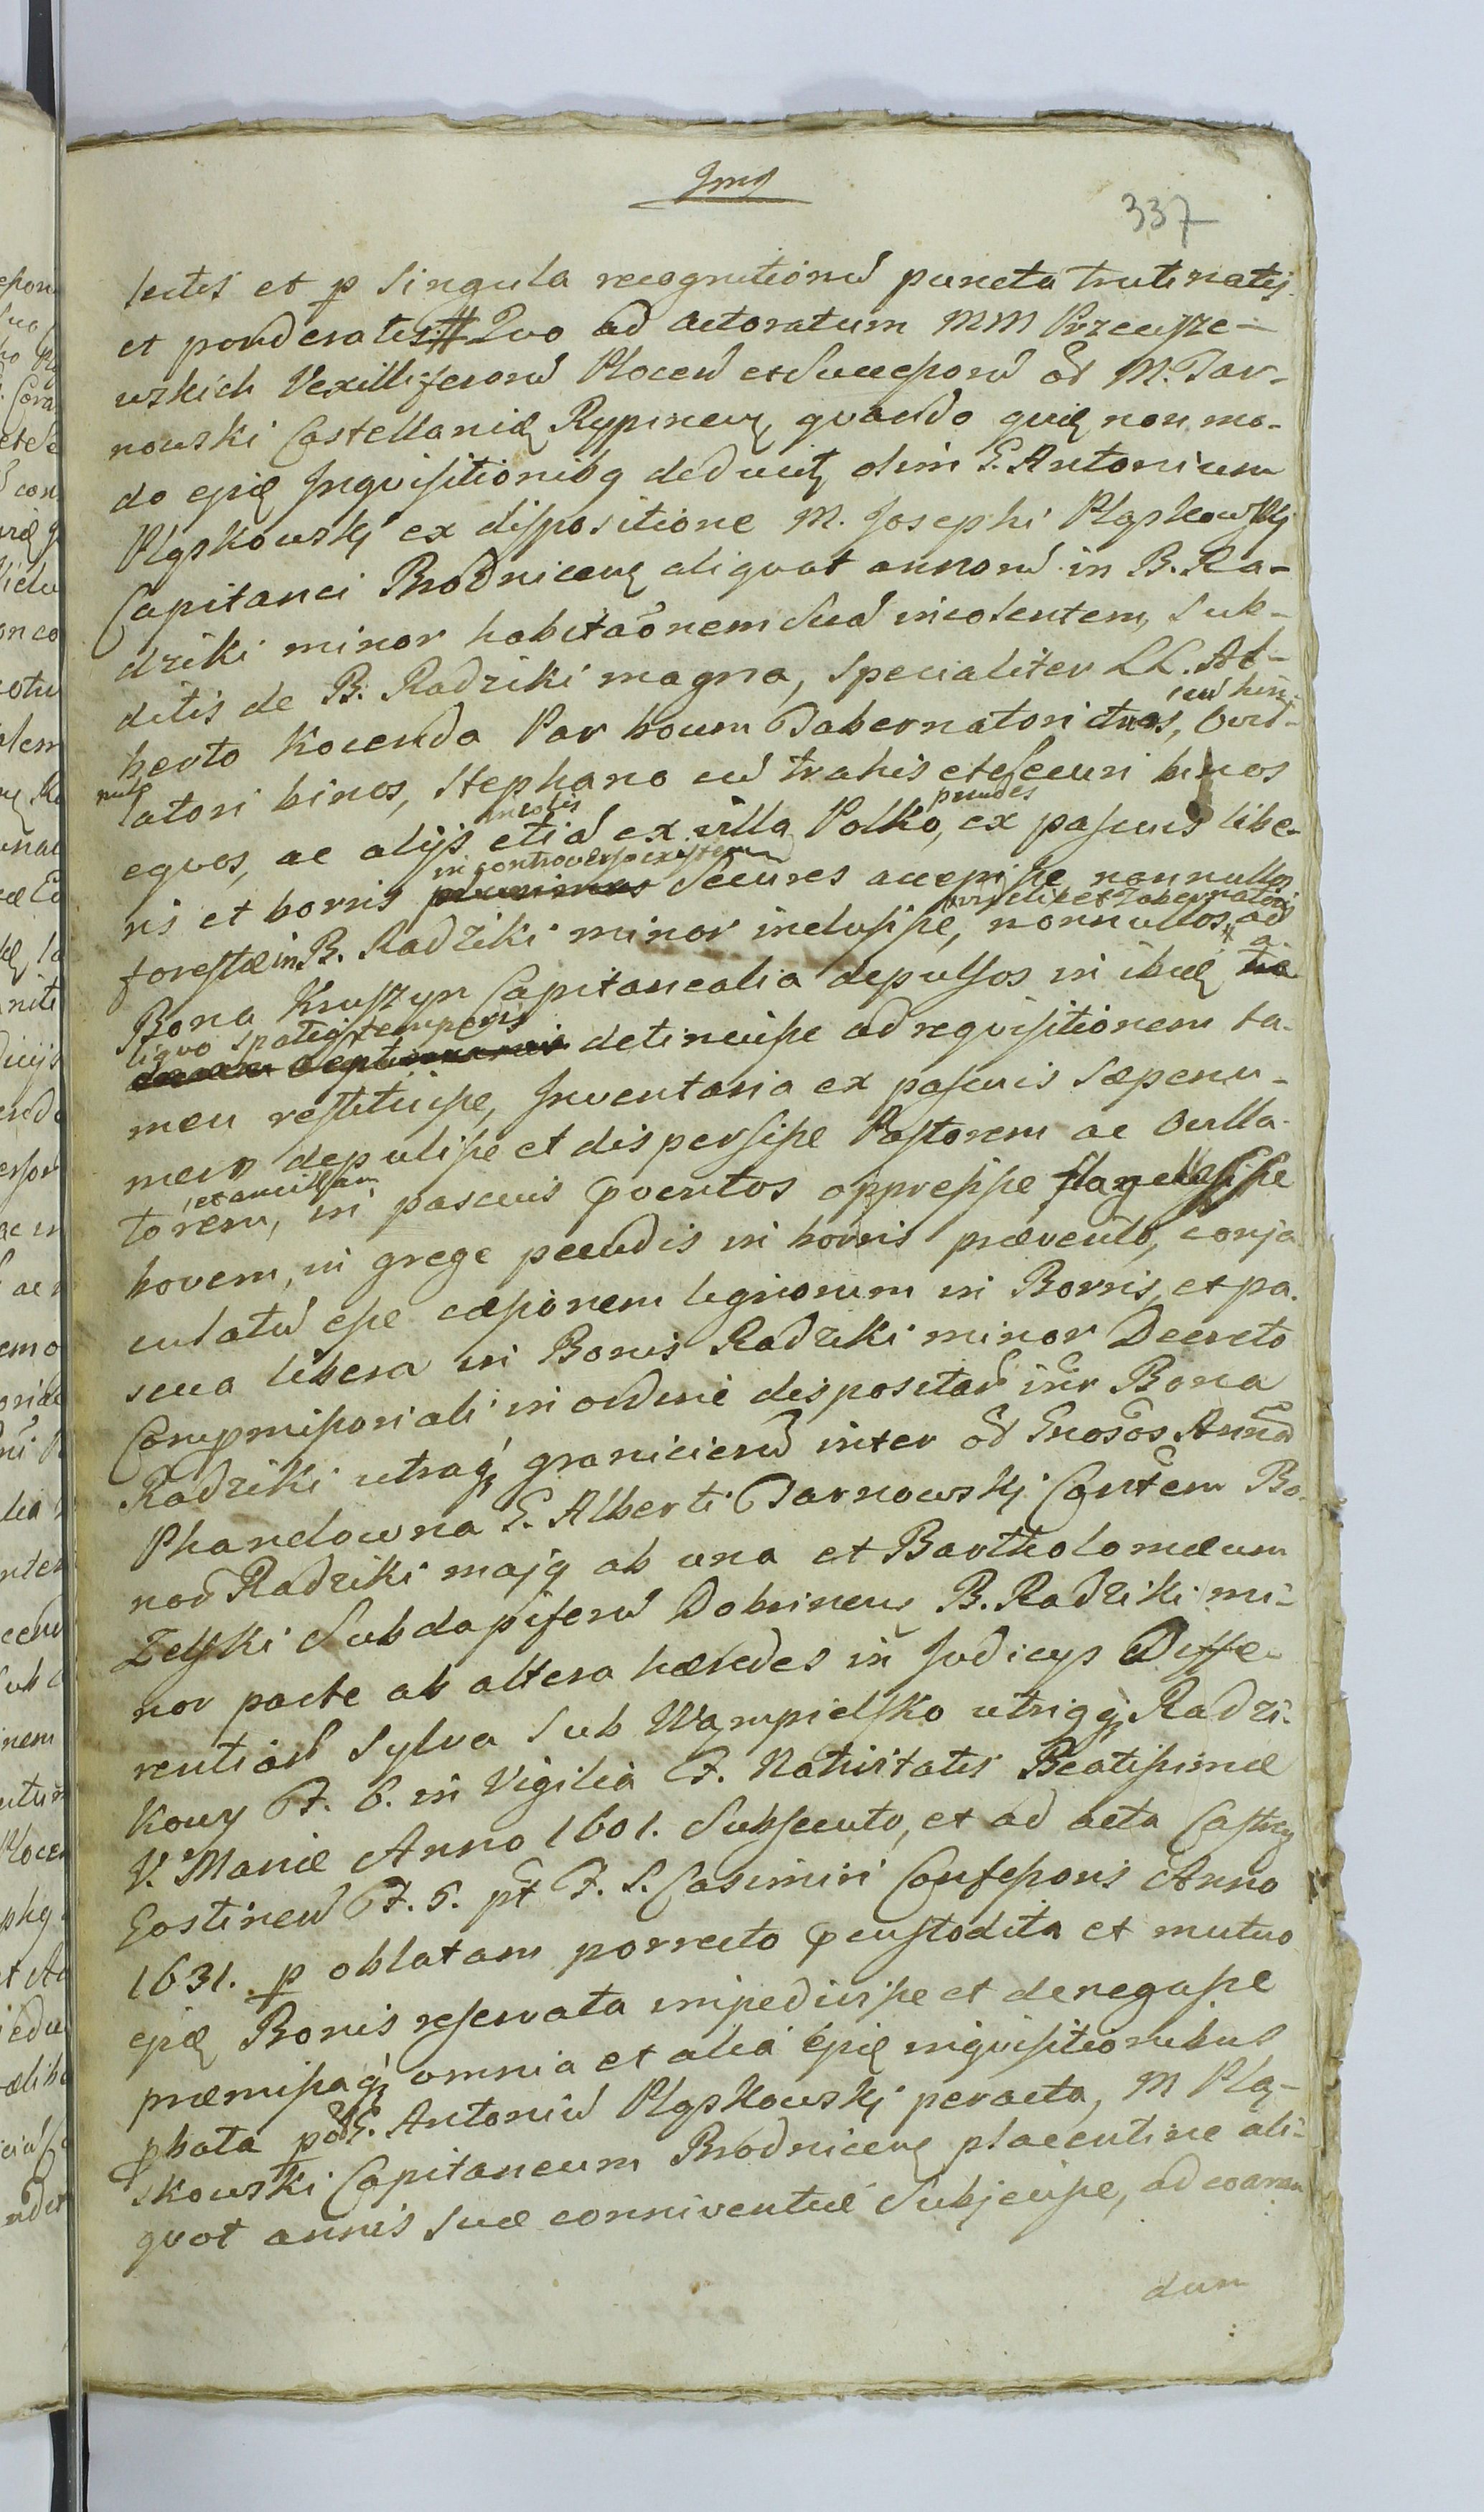 337
lectis et p singula recognitionū puncta trutinatis
et ponderatis # Quo ad actoratum MM Przeczysze-
wskich Vexilliferorū Plocen et Succesorū od M. Tar-
nowski Castellanią Rypinen quando quidē non mo-
do ejus Inquisitionibq deducit, olim G. Antonium
Pląskowskj ex dispositione M. Josephi Pląskowskj
Capitanei Brodnicen aliquot annorū in B. Ra-
dziki minor habitaõnem suā incolentem, sub-
ditis de B. Radziki magna, specialiter LL. Al-
berto Kocenda Par boum Tabernatori duos, Ovil-
latori binos, Stephano cū trahis et securi binos
equos, ac alijs incolis etiā ex villa Polko, prudes ex pascuis libe-
ris et borris in controverso existen secures accepisse nonnullos
forestæ in B. Radziki minor inclusisse, nonnullos ad
Bona Kruszyn Capitanealia depulsos in ibiq a
liquo spatio temporis detinuisse ad requisitionem ta-
men restituisse, Inventaria ex pascuis sæpenu-
mero depulisse et dispersisse Pastorem ac Ovilla-
torem, et ancillam in pascuis pventos oppressisse flagellasse
bovem, in grege pecudis in borris prævento, conja
culatū esse cæsionem lignorum in Borris, et pa-
scua libera in Bonis Radziki minor Decreto
Compmissoriali in ordine dispositar inr Bona
Radziki utraq granicierū inter od Gnosos Annā
Phandowna G. Alberti Tarnowskj Conttem Bo-
nor Radziki majq ab una et Bartholomæum
Zelski Subdapiferū Dobrinen B. Radziki mi-
nor parte ab altera hæredes in Judicijs Diffe-
rentiar Sylva sub Wąmpielsko utriqq Radzi-
kowy F. 6. in Vigilia F. Nativitatis Beatissimæ
V. Mariæ Anno 1601. Subsecuto, et ad acta Castren
Gostinen F. 5. pt F. S. Casimiri Confessoris Anno
1631. p oblatam porrecto pcustodita et mutuo
ejus Bonis reservata impedivisse et denegasse
præmissaq omnia et alia ejus inquisitionibus
pbata p od G. Antoniū Pląskowskj peracta, M Plą-
skowski Capitaneum Brodnicen placentine ali-
quot annis suæ conniventiæ Subjecisse, ad coarcen
dum